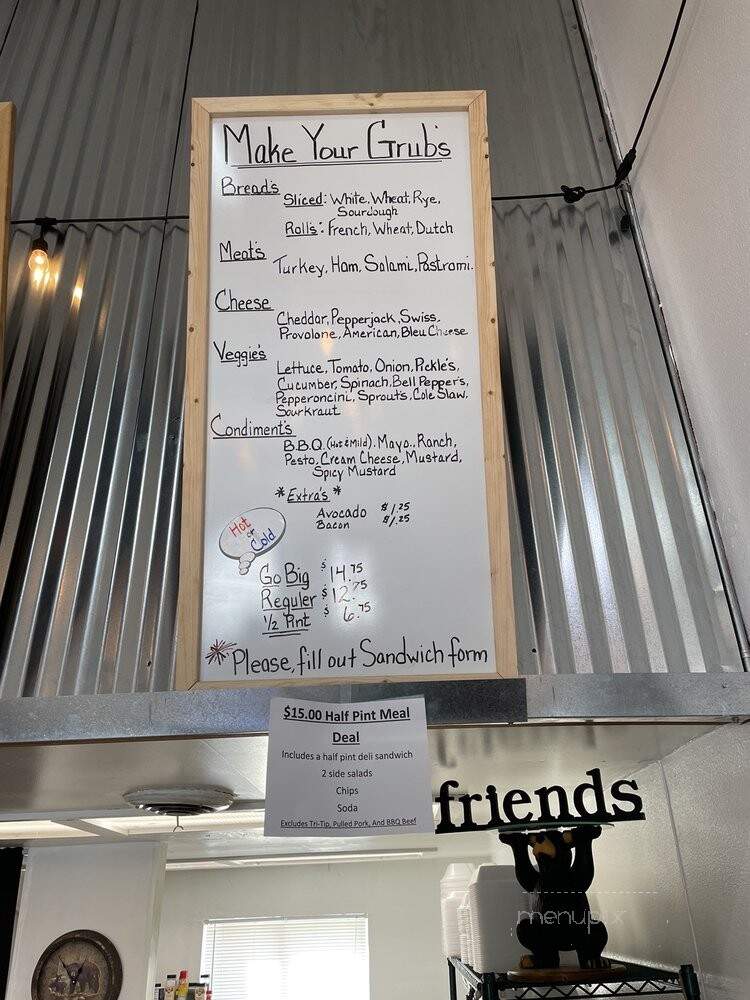 Make Your Grub's
Bread's
Sliced: White, Wheat, Rye,
Sourdough
Roll's: French, Wheat, Dutch
Meat's
Turkey, Ham, Salami, Pastrami.
Cheese
Cheddar, Pepperjack, Swiss,
Provolone, American, Bleu Cheese
Veggie's
Lettuce, Tomato, Onion, Pickle's,
Cucumber, Spinach, Bell Pepper's,
Pepperoncini, Sprout's, Cole Slaw,
Sourkraut
Condiment's
B.B.Q. (Hot & Mild), Mayo., Ranch,
Pesto, Cream Cheese, Mustard,
Spicy Mustard
* Extra's *
Avocado $1.25
Bacon $1.25
Hot
or
Cold
Go Big $14.75
Reguler $12.75
1/2 Pint $6.75
* Please, fill out Sandwich form
$15.00 Half Pint Meal
Deal
Includes a half pint deli sandwich
2 side salads
Chips
Soda
Excludes Tri-Tip, Pulled Pork, And BBQ Beef
friends
menupix